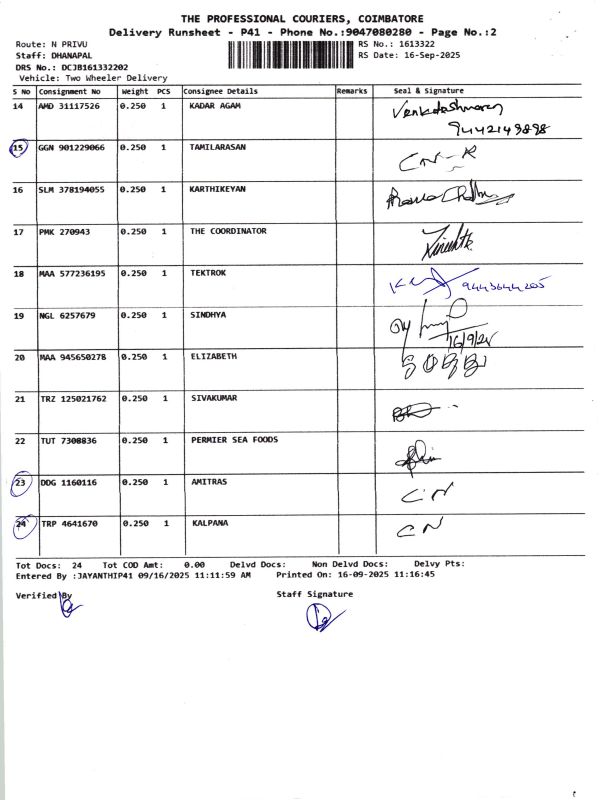 THE PROFESSIONAL COURIERS, COIMBATORE
Delivery Runsheet - P41 - Phone No.:9047080280 - Page No.:2
Route: N PRIVU RS No.: 1613322
Staff: DHANAPAL RS Date: 16-Sep-2025
DRS No.: DCJB161332202
Vehicle: Two Wheeler Delivery
S No Consignment No Weight PCS Consignee Details Remarks Seal & Signature
14 AMD 31117526 0.250 1 KADAR AGAM
9442149898
15 GGN 901229066 0.250 1 TAMILARASAN CN-R
16 SLM 378194055 0.250 1 KARTHIKEYAN
17 PMK 270943 0.250 1 THE COORDINATOR
18 MAA 577236195 0.250 1 TEKTROK 9443644205
19 NGL 6257679 0.250 1 SINDHYA
16/9/25
20 MAA 945650278 0.250 1 ELIZABETH
21 TRZ 125021762 0.250 1 SIVAKUMAR
22 TUT 7308836 0.250 1 PERMIER SEA FOODS
23 DDG 1160116 0.250 1 AMITRAS CN
24 TRP 4641670 0.250 1 KALPANA CN
Tot Docs: 24 Tot COD Amt: 0.00 Delvd Docs: Non Delvd Docs: Delvy Pts:
Entered By :JAYANTHIP41 09/16/2025 11:11:59 AM Printed On: 16-09-2025 11:16:45
Verified By Staff Signature